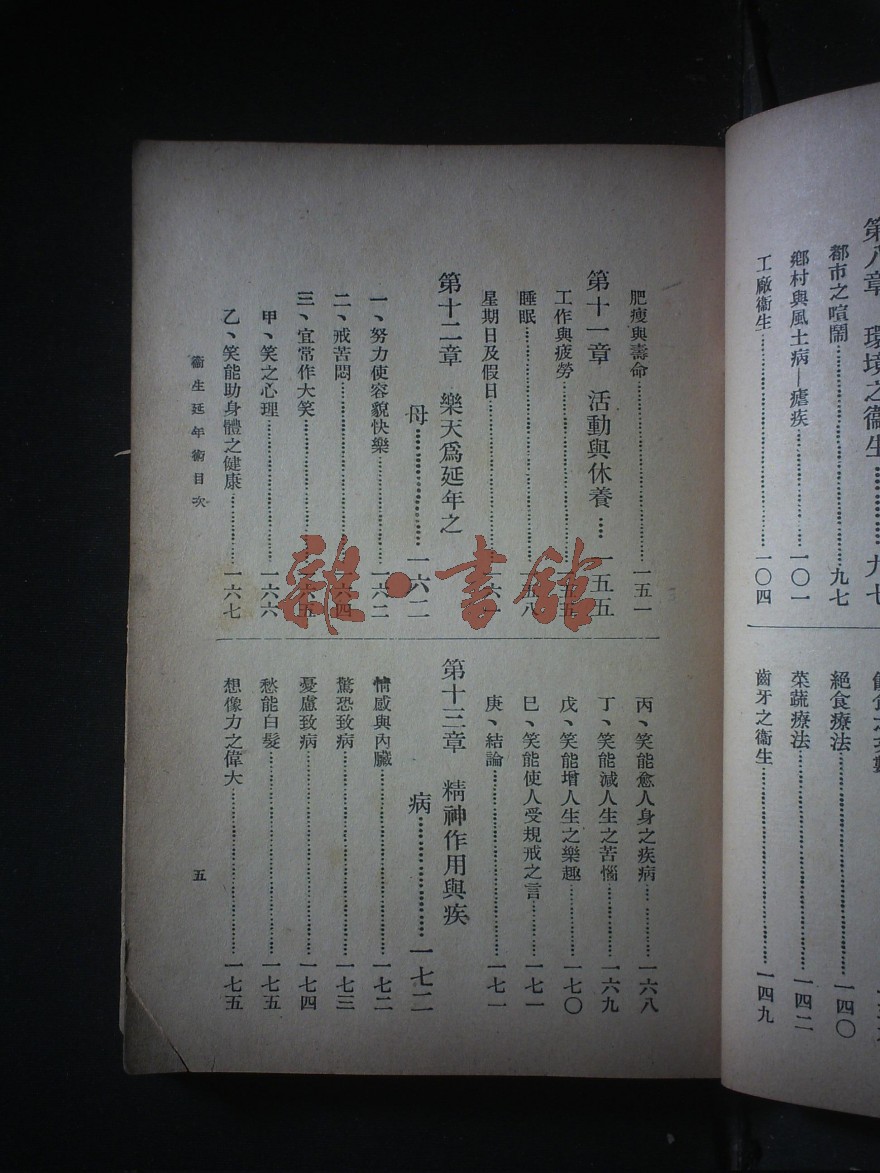 第八章　環境之衞生…………九七
都市之喧鬧…………九七
鄉村與風土病—瘧疾…………一〇一
工廠衞生…………一〇四
絕食療法…………一四〇
菜蔬療法…………一四二
齒牙之衞生…………一四九
肥瘦與壽命…………一五一
第十一章　活動與休養…一五五
工作與疲勞…………一五五
睡眠…………一五八
星期日及假日…………一六一
第十二章　樂天爲延年之
母…………一六二
一、努力使容貌快樂…………一六二
二、戒苦悶…………一六四
三、宜常作大笑…………一六五
甲、笑之心理…………一六六
乙、笑能助身體之健康…………一六七
丙、笑能愈人身之疾病…………一六八
丁、笑能減人生之苦惱…………一六九
戊、笑能增人生之樂趣…………一七〇
巳、笑能使人受規戒之言…………一七一
庚、結論…………一七一
第十三章　精神作用與疾
病…………一七二
情感與內臟…………一七二
驚恐致病…………一七三
憂慮致病…………一七四
愁能白髮…………一七五
想像力之偉大…………一七五
衞生延年術目次
五
雜·書館